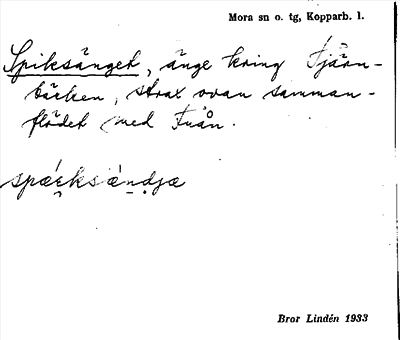 Mora sn o. tg, Kopparb. l.
Spiksänget, änge kring Tjärn-
bäcken, strax ovan samman-
flödet med Fuån.
Bror Lindén 1933